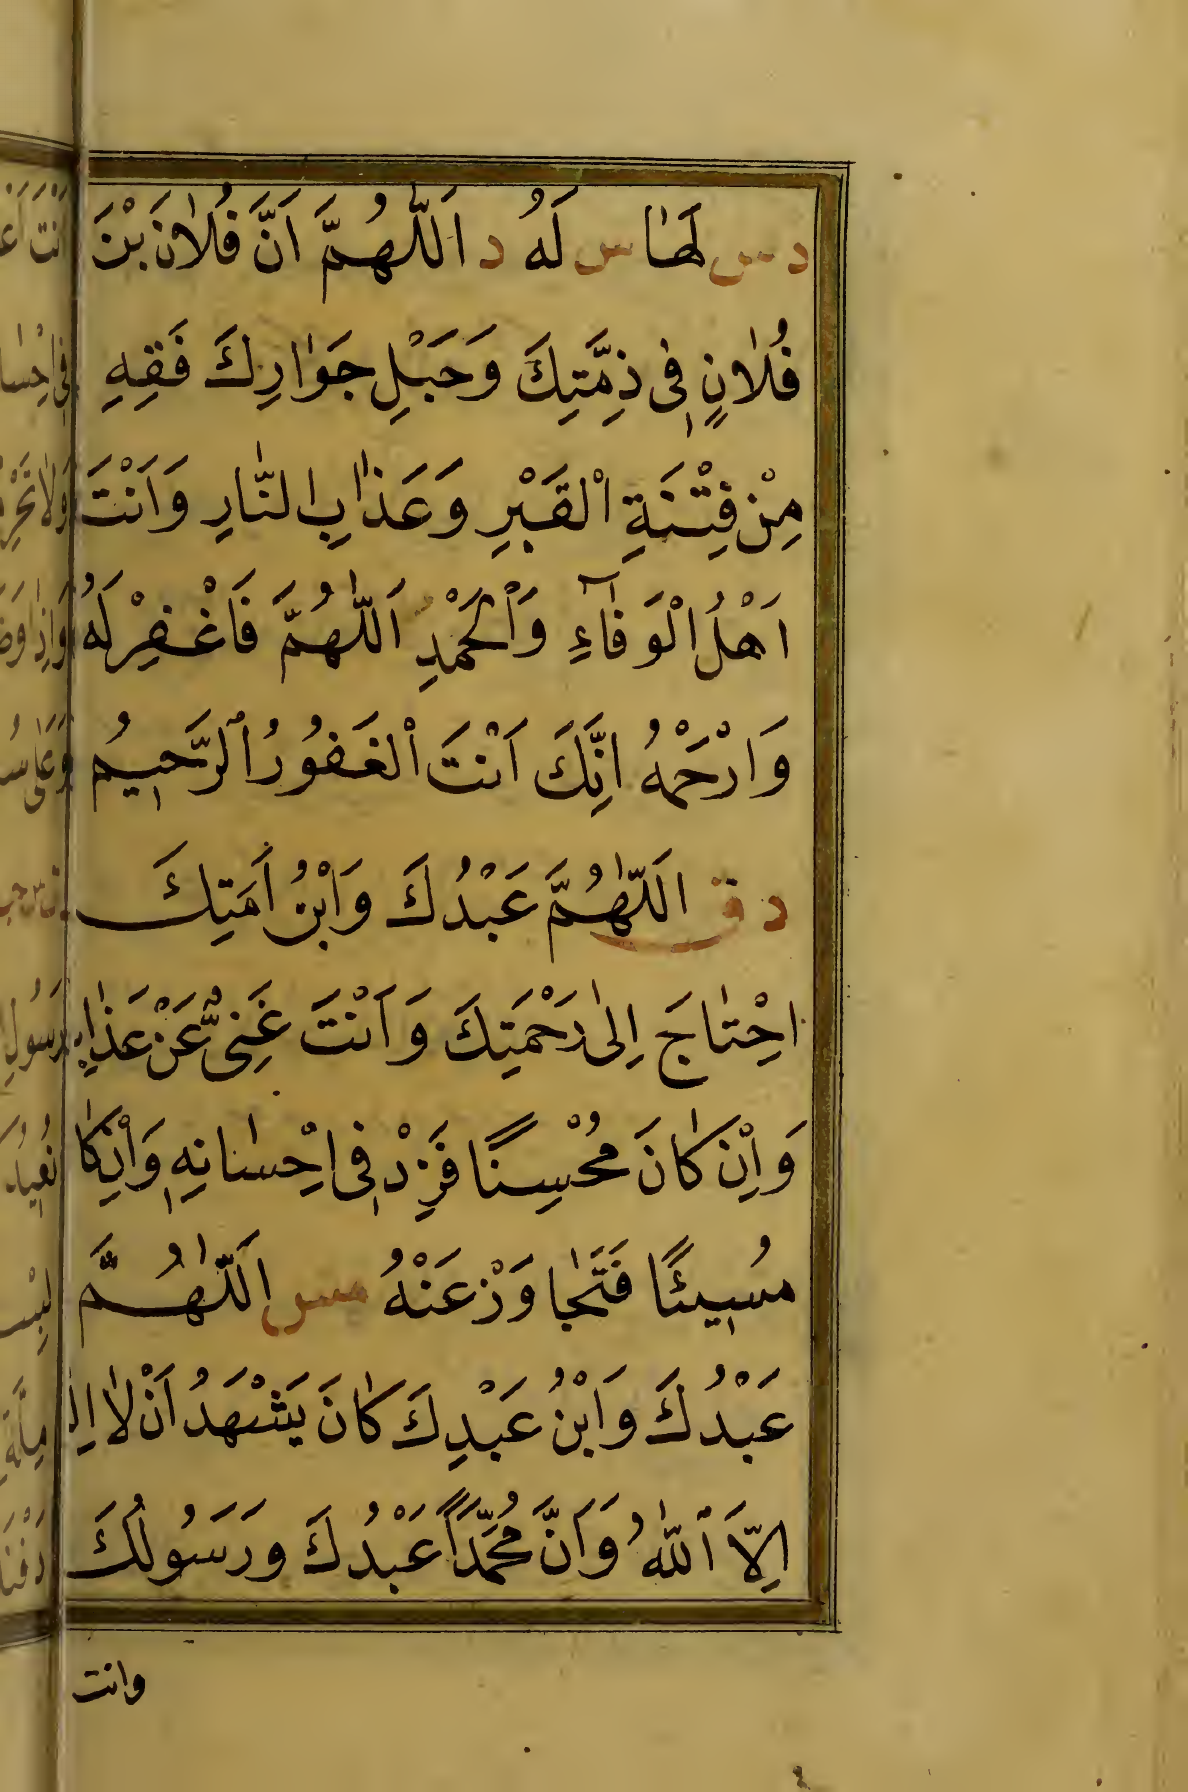 د س لَهَا س لَهُ د اَللّٰهُمَّ اَنَّ فُلَانَ بْنَ
فُلَانٍ فِي ذِمَّتِكَ وَحَبْلِ جَوَارِكَ فَقِهِ
مِنْ فِتْنَةِ الْقَبْرِ وَعَذَابِ النَّارِ وَاَنْتَ
اَهْلُ الْوَفَآءِ وَالْحَمْدِ اَللّٰهُمَّ فَاغْفِرْ لَهُ
وَارْحَمْهُ اِنَّكَ اَنْتَ الْغَفُورُ الرَّحِيمُ
د ق اَللّٰهُمَّ عَبْدُكَ وَابْنُ اَمَتِكَ
احْتَاجَ اِلٰى رَحْمَتِكَ وَاَنْتَ غَنِيٌّ عَنْ عَذَابِ
وَاِنْ كَانَ مُحْسِنًا فَزِدْ فِي اِحْسَانِهِ وَاِنْ كَا
مُسِيئًا فَتَجَاوَزْ عَنْهُ مس اَللّٰهُمَّ
عَبْدُكَ وَابْنُ عَبْدِكَ كَانَ يَشْهَدُ اَنْ لَا اِلٰ
اِلَّا اللّٰهُ وَاَنَّ مُحَمَّدًا عَبْدُكَ وَرَسُولُكَ
وانت